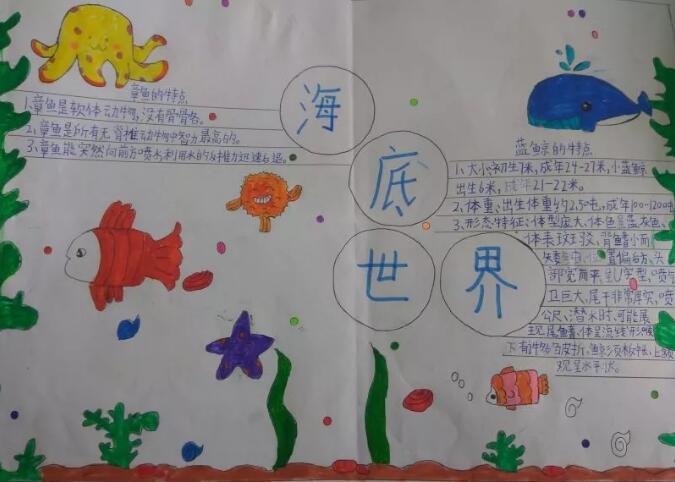 海底世界
章鱼的特点
1、章鱼是软体动物,没有骨骼。
2、章鱼是所有无脊椎动物中智力最高的。
3、章鱼能突然向前方喷水利用水的反推力迅速后退。
蓝鲸的特点
1、大小:初生7米,成年24-27米,小蓝鲸
出生6米,成年21-22米。
2、体重:出生体重约2.50吨,成年100-120吨
3、形态特征:体型庞大、体色呈蓝灰色、
体表斑驳、背鳍小而
置偏后方、头
部宽而平,呈U字型,喷气
卫巨大,尾干非常厚实,喷
公尺,潜水时,可能展
现尾鳍、体呈流线形
观呈水平状。